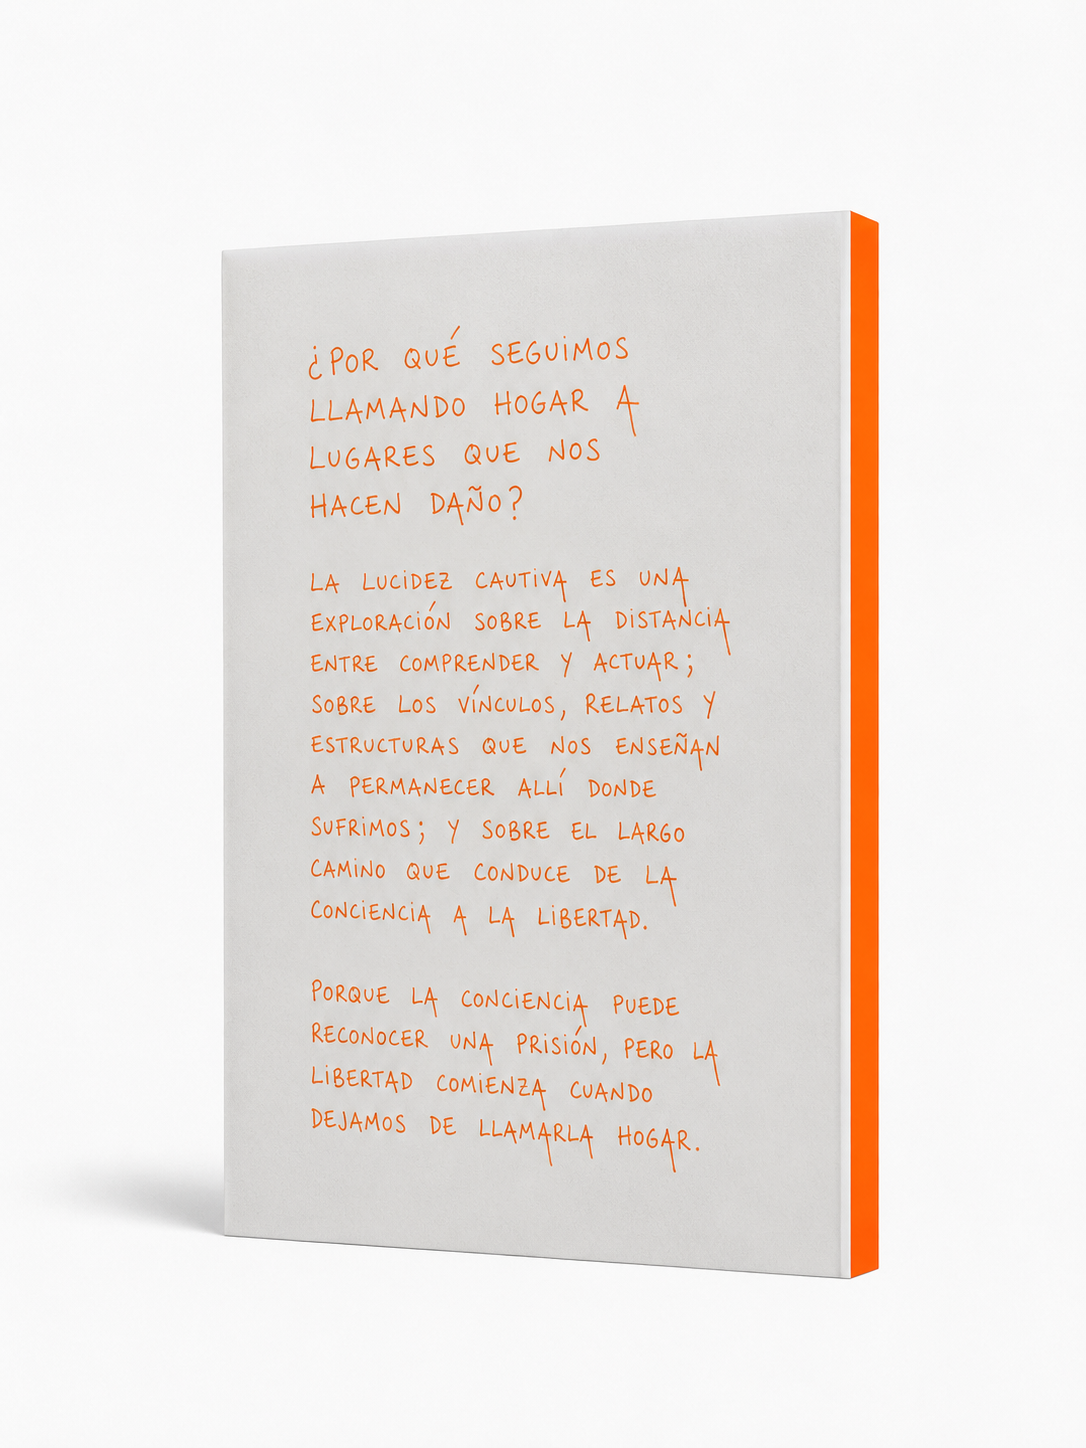 ¿POR QUÉ SEGUIMOS
LLAMANDO HOGAR A
LUGARES QUE NOS
HACEN DAÑO?
LA LUCIDEZ CAUTIVA ES UNA
EXPLORACIÓN SOBRE LA DISTANCIA
ENTRE COMPRENDER Y ACTUAR;
SOBRE LOS VÍNCULOS, RELATOS Y
ESTRUCTURAS QUE NOS ENSEÑAN
A PERMANECER ALLÍ DONDE
SUFRIMOS; Y SOBRE EL LARGO
CAMINO QUE CONDUCE DE LA
CONCIENCIA A LA LIBERTAD.
PORQUE LA CONCIENCIA PUEDE
RECONOCER UNA PRISIÓN, PERO LA
LIBERTAD COMIENZA CUANDO
DEJAMOS DE LLAMARLA HOGAR.